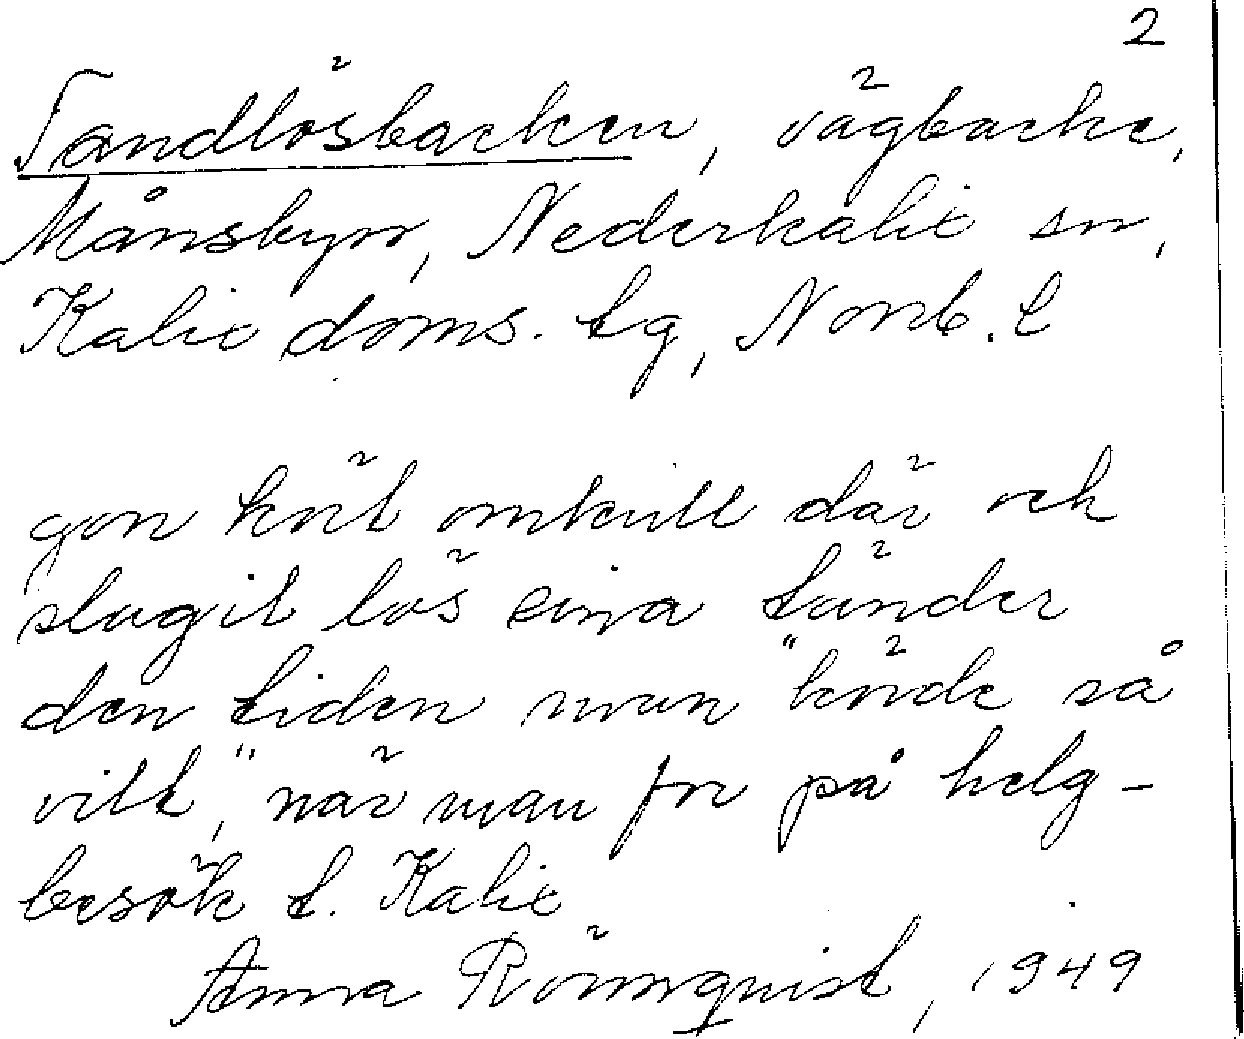 2
Tandlösbacken, vägbacke,
Månsbyn, Nederkalix sn,
Kalix doms. tg, Norrb. l
gon kört omkull där och
slagit lös sina tänder
den tiden man "körde så
vilt," när man for på helg-
besök t. Kalix
Anna Rönnquist, 1949